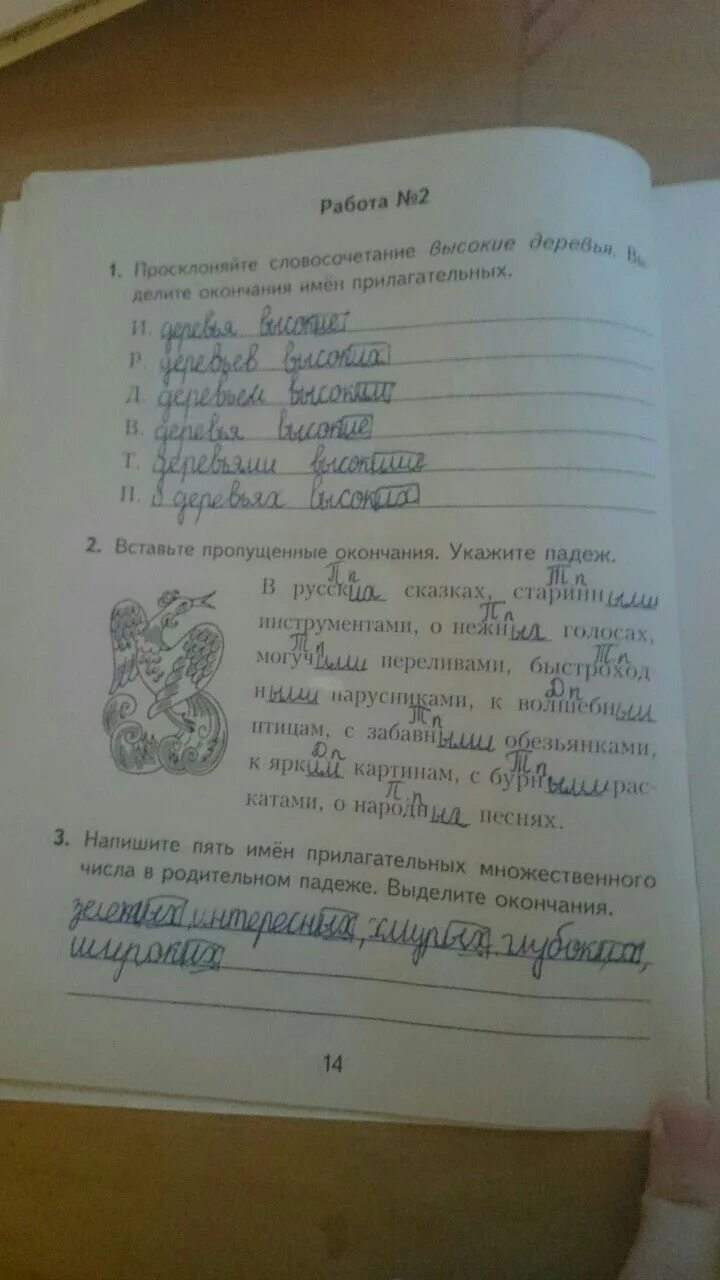 Работа №2
1. Просклоняйте словосочетание высокие деревья. Вы-
делите окончания имён прилагательных.
И. деревья высокие
Р. деревьев высоких
Д. деревьем высоким
В. деревья высокие
Т. деревьями высокими
П. о деревьях высоких
2. Вставьте пропущенные окончания. Укажите падеж.
Пп Тп
В русских сказках, старинными
Пп
инструментами, о нежных голосах,
Тп Тп
могучими переливами, быстроход
Дп
ными парусниками, к волшебным
Тп
птицам, с забавными обезьянками,
Дп Тп
к ярким картинам, с бурными рас-
П.п
катами, о народных песнях.
3. Напишите пять имён прилагательных множественного
числа в родительном падеже. Выделите окончания.
зеленых, интересных, хмурых, глубоких,
широких
14